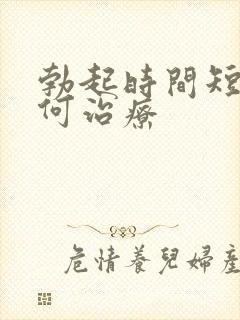 勃起時間短
何治療
危情養兒婦產